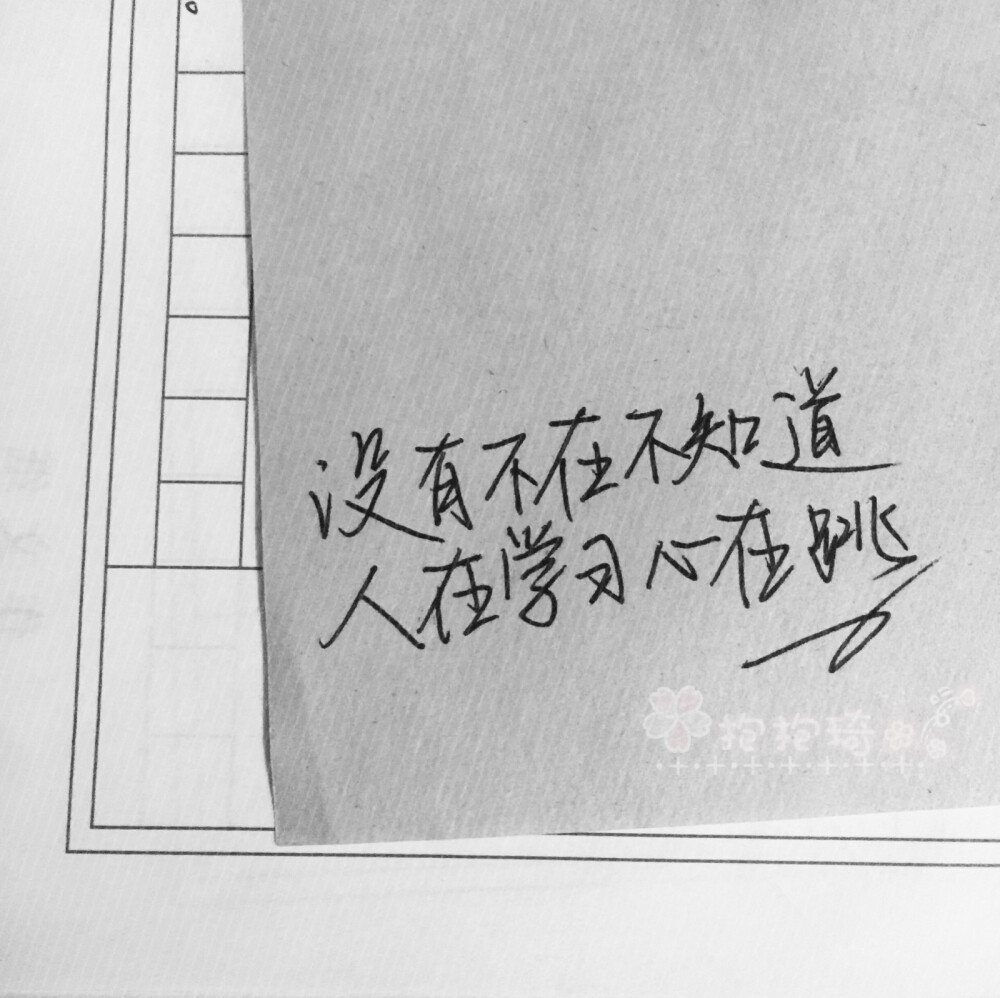 没有不在不知道
人在学习心在跳
抱抱琦